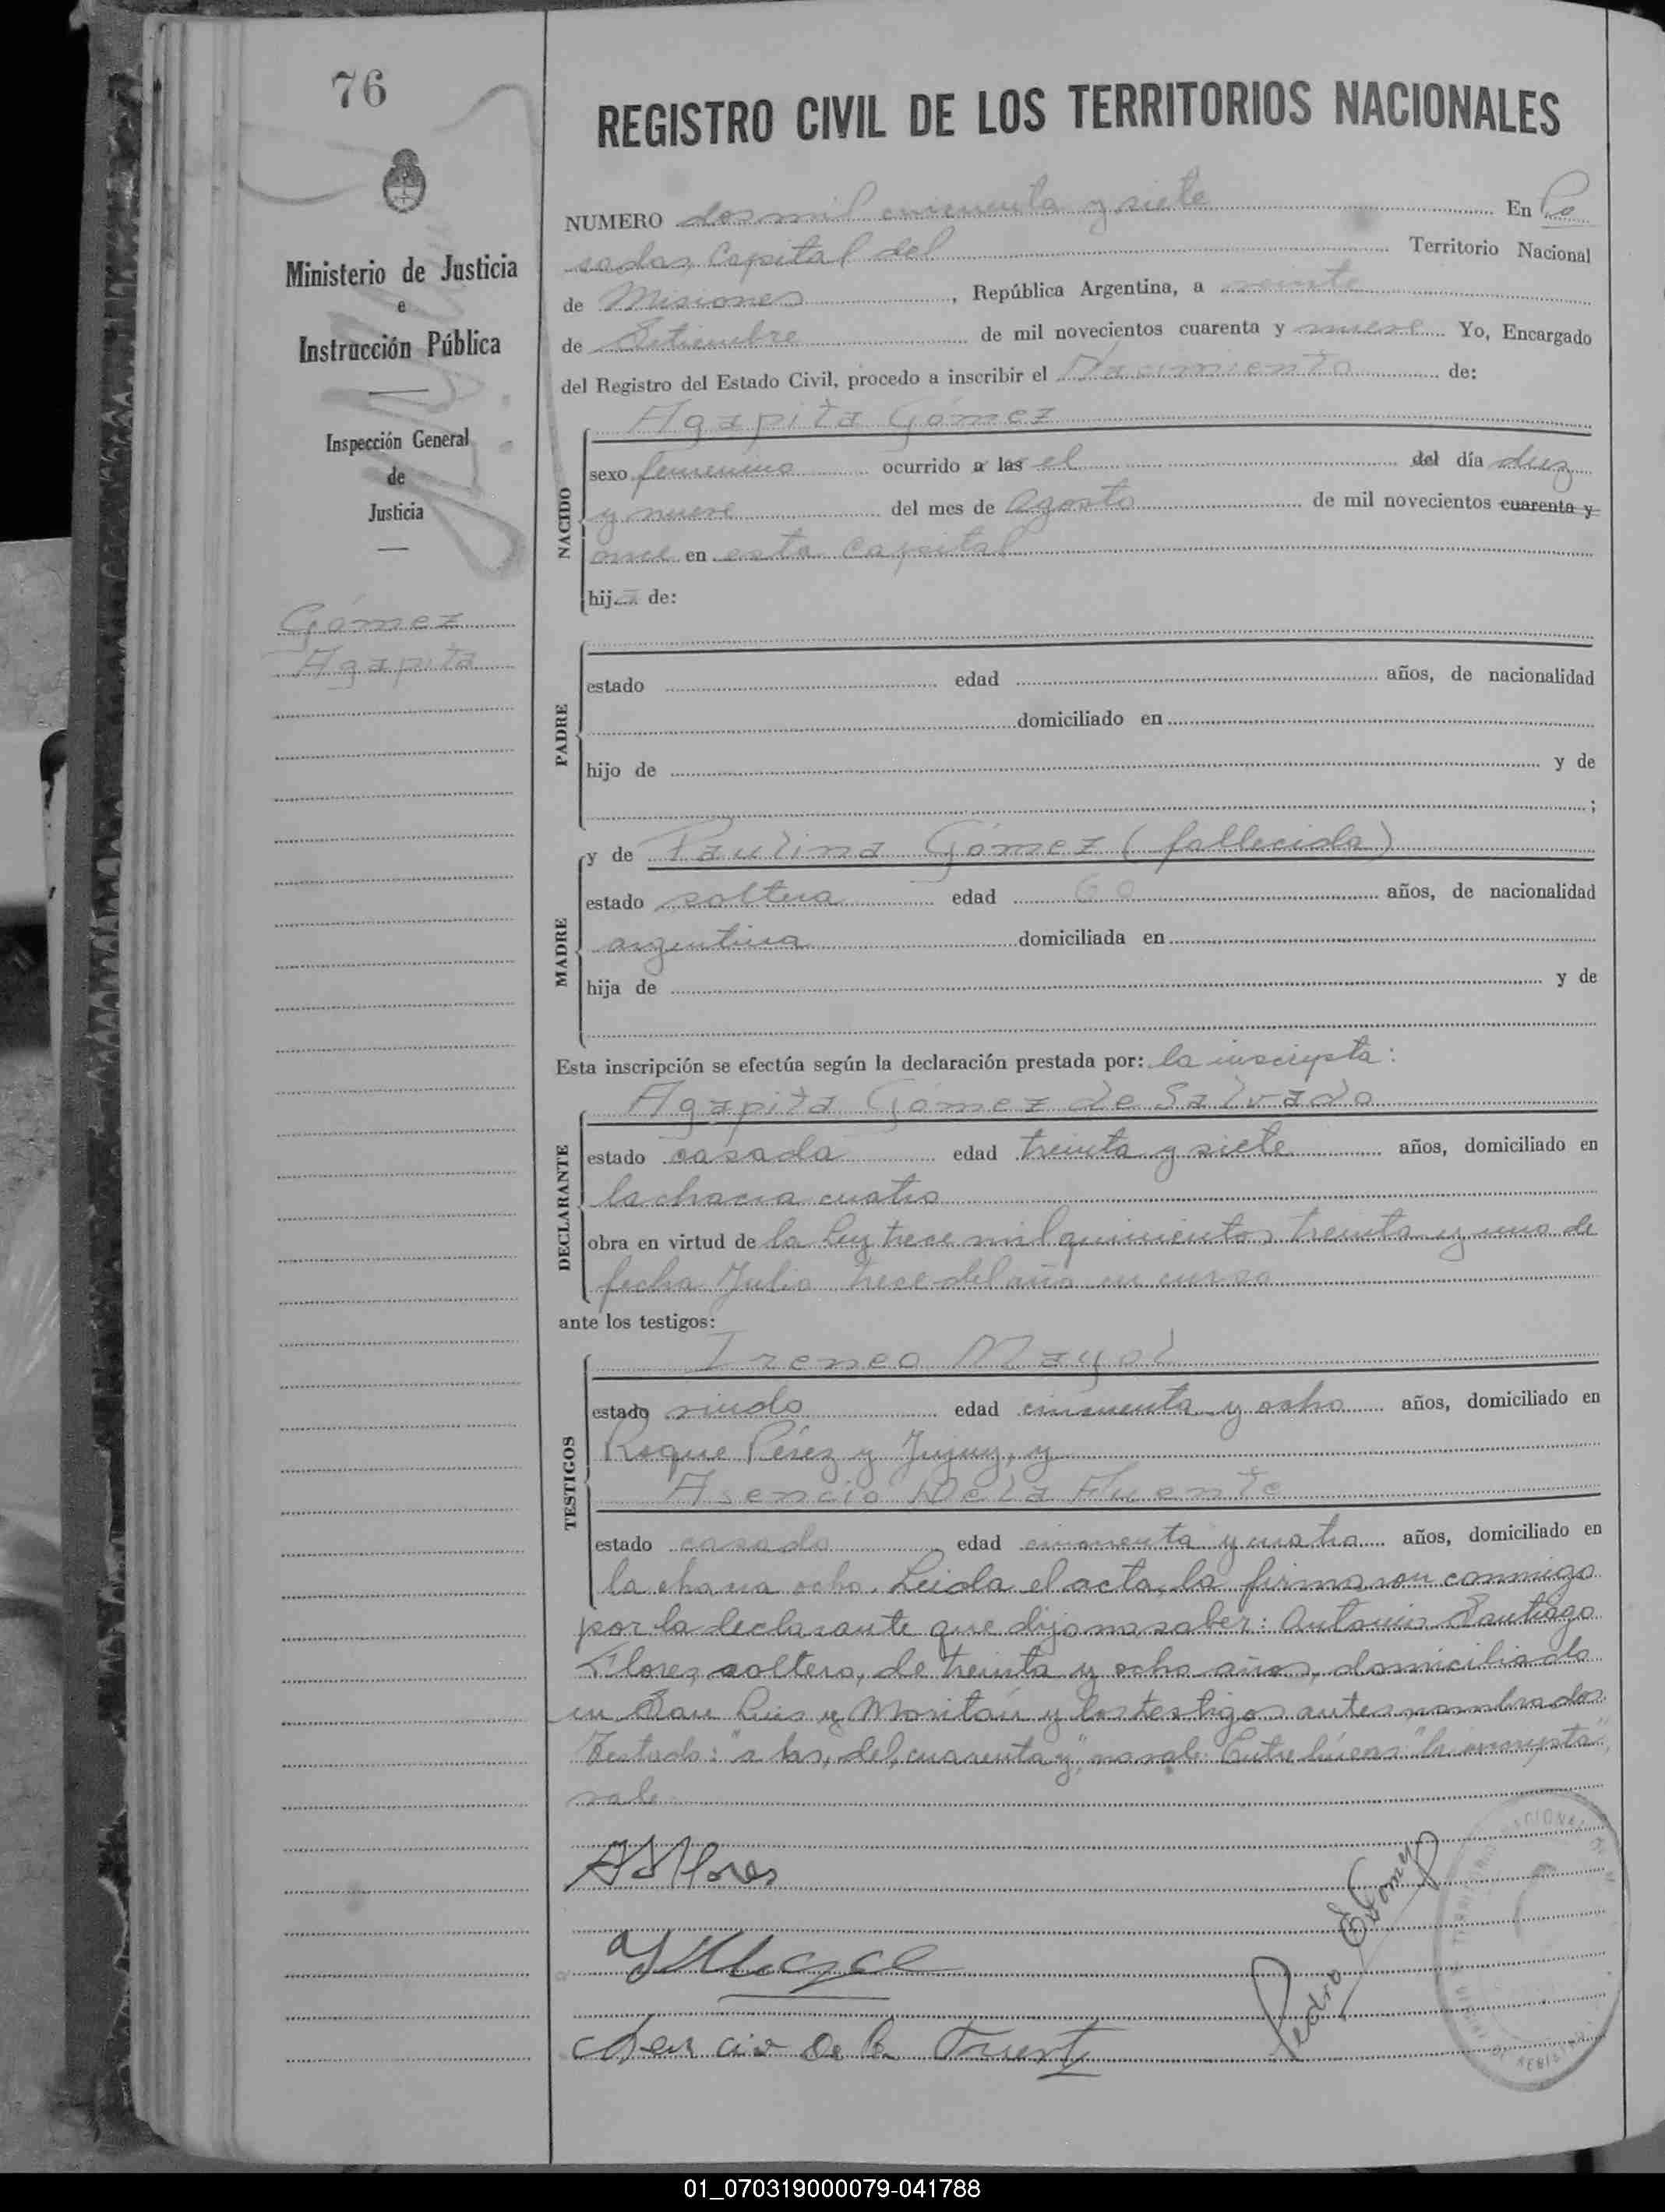 76
REGISTRO CIVIL DE LOS TERRITORIOS NACIONALES
Ministerio de Justicia
e
Instrucción Pública
Inspección General
de
Justicia
Gómez
Agapita
NUMERO dos mil cincuenta y siete En Po
sadas, Capital del Territorio Nacional
de Misiones, República Argentina, a veinte
de Setiembre de mil novecientos cuarenta y nueve Yo, Encargado
del Registro del Estado Civil, procedo a inscribir el Nacimiento de:
Agapita Gómez
NACIDO
sexo femenino ocurrido a las el del día diez
y nueve del mes de Agosto de mil novecientos cuarenta y
once en esta Capital
hija de:
PADRE
estado edad años, de nacionalidad
domiciliado en
hijo de y de
;
MADRE
y de Paulina Gómez (fallecida)
estado soltera edad 60 años, de nacionalidad
argentina domiciliada en
hija de y de
Esta inscripción se efectúa según la declaración prestada por: la inscripta:
DECLARANTE
Agapita Gómez de Salvado
estado casada edad treinta y siete años, domiciliado en
la chacra cuatro
obra en virtud de la Ley trece mil quinientos treinta y uno de
fecha Julio trece del año en curso
ante los testigos:
TESTIGOS
Ireneo Mayol
estado viudo edad cincuenta y ocho años, domiciliado en
Roque Pérez y Jujuy, y
Asencio De La Fuente
estado casado edad cincuenta y cuatro años, domiciliado en
la chacra ocho. Leida el acta, la firmaron conmigo
por la declarante que dijo no saber: Antonio Santiago
Flores, soltero, de treinta y ocho años, domiciliado
en San Luis y y los testigos antes nombrados
Testado: "a las, del, cuarenta y", no vale. Entre lineas: "la inscripta",
vale.
A S Flores
Asencio De la Fuente
Pedro E Gomez
01_070319000079-041788